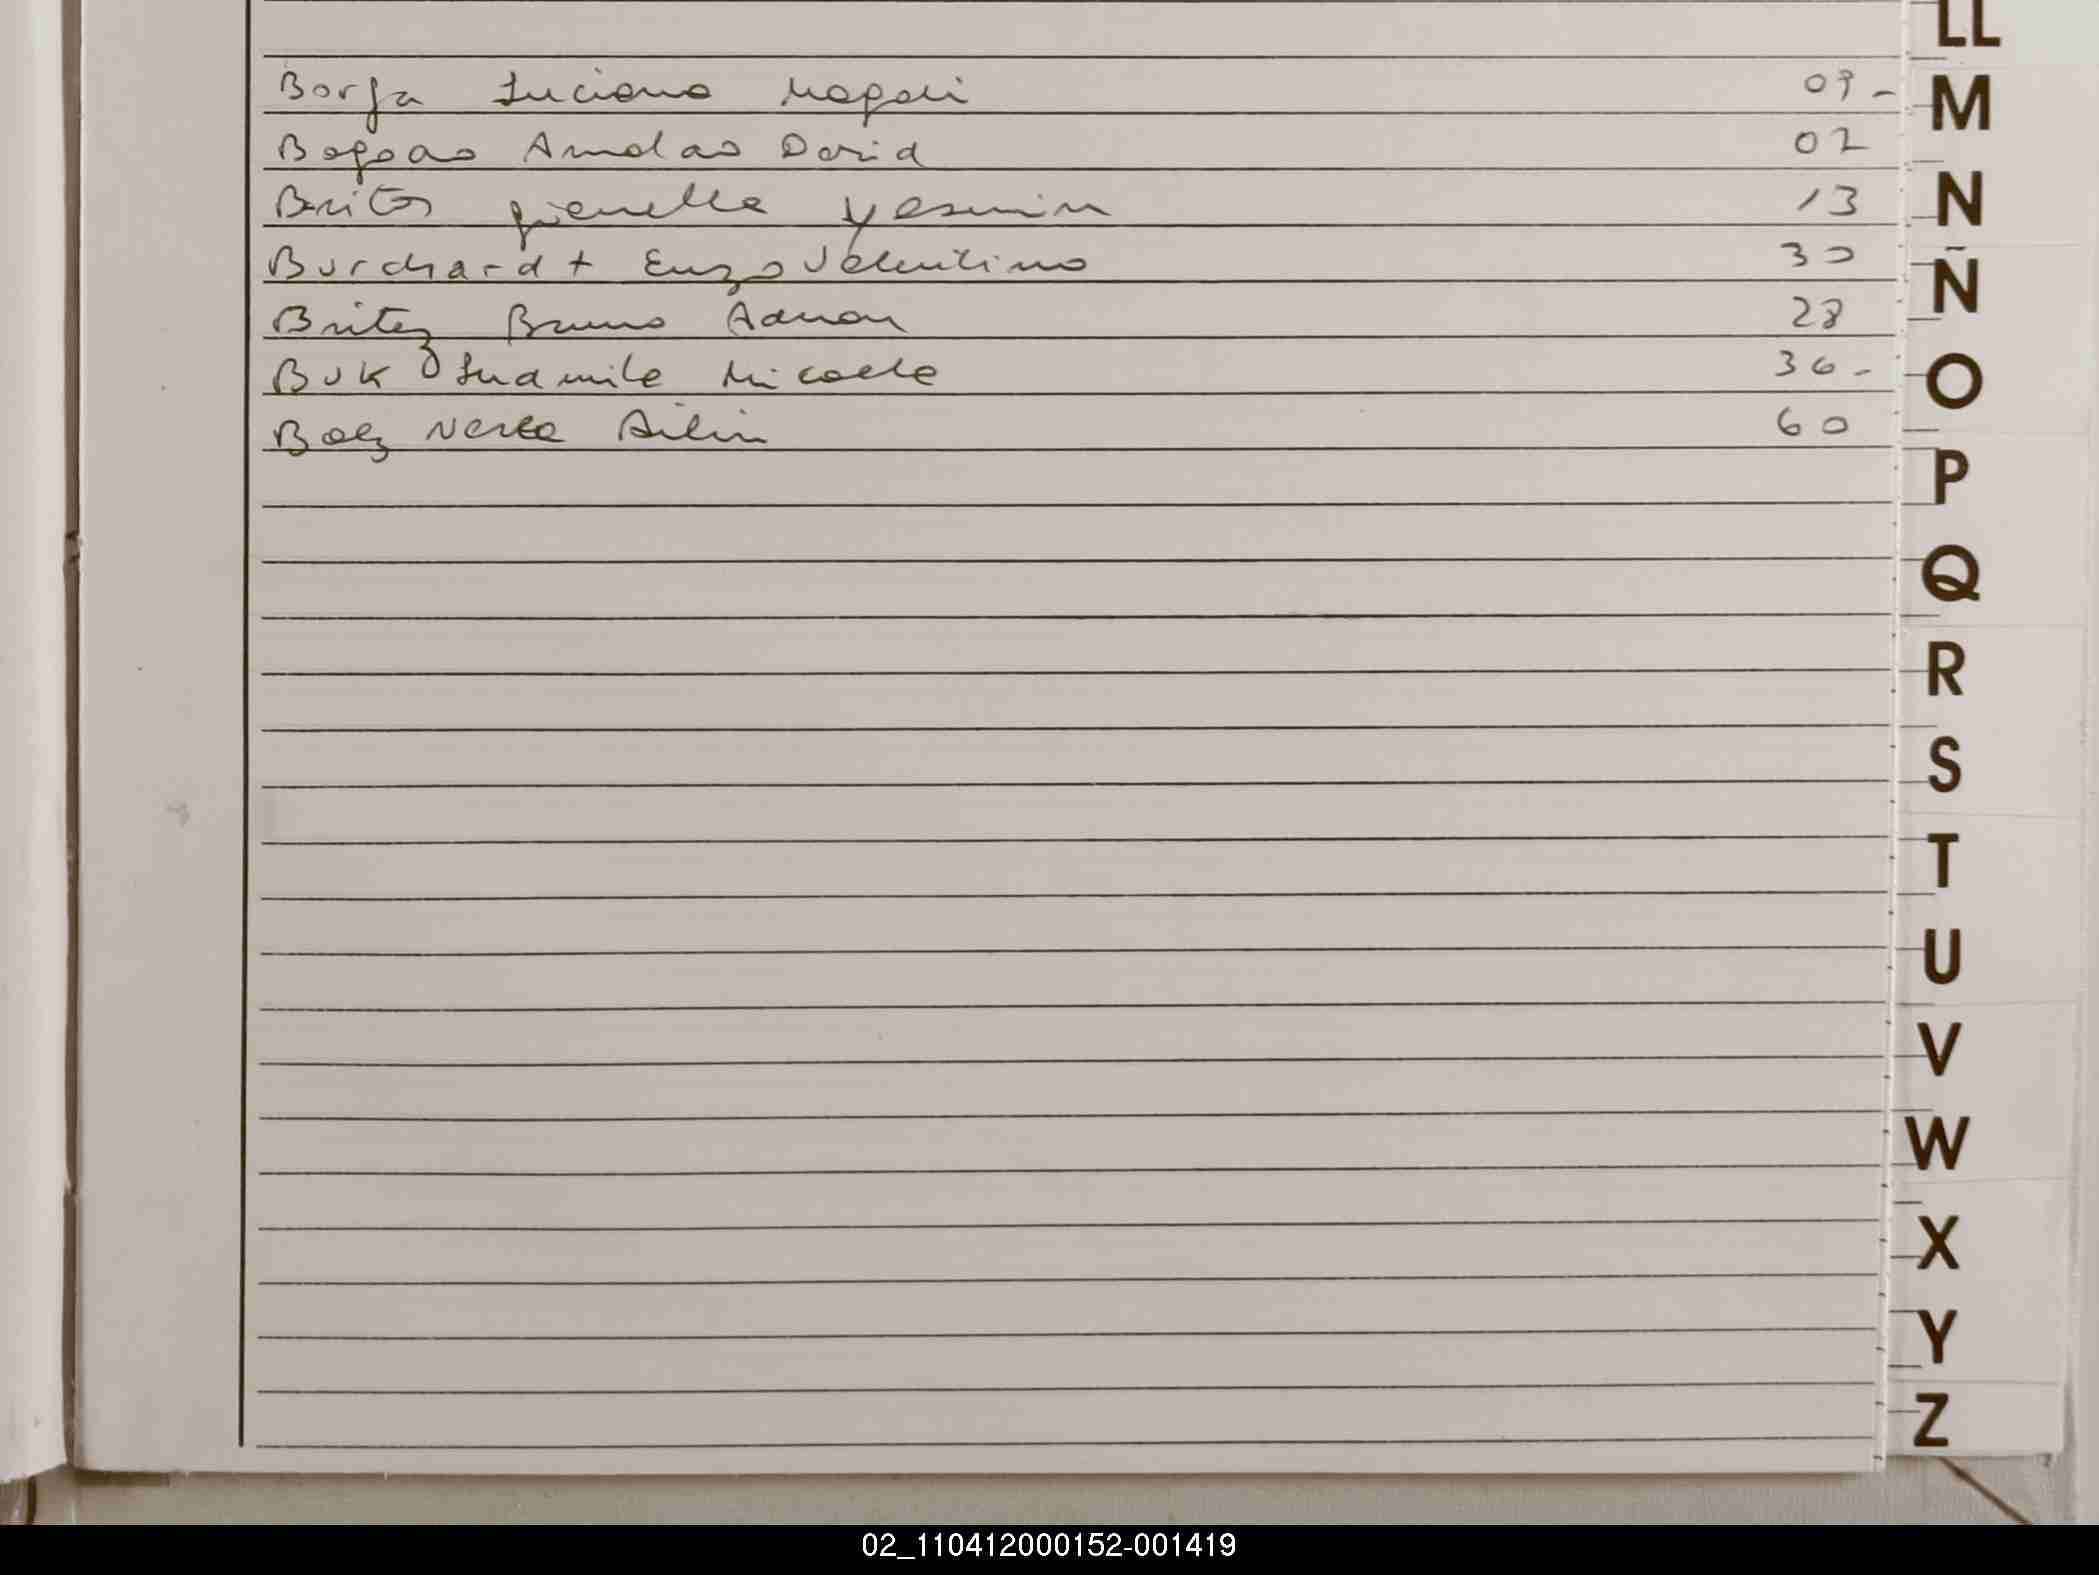 LL
Borja Luciana Magali 09-
M
Bogado Amolao David 02
N
Britos gianella yasmin 13
Burchardt Enzo Valentino 30
Ñ
Britez Bruno Adrian 28
Buk Ludmila Micaela 36-
O
Baez Nerea Ailin 60
P
Q
R
S
T
U
V
W
X
Y
Z
02_110412000152-001419